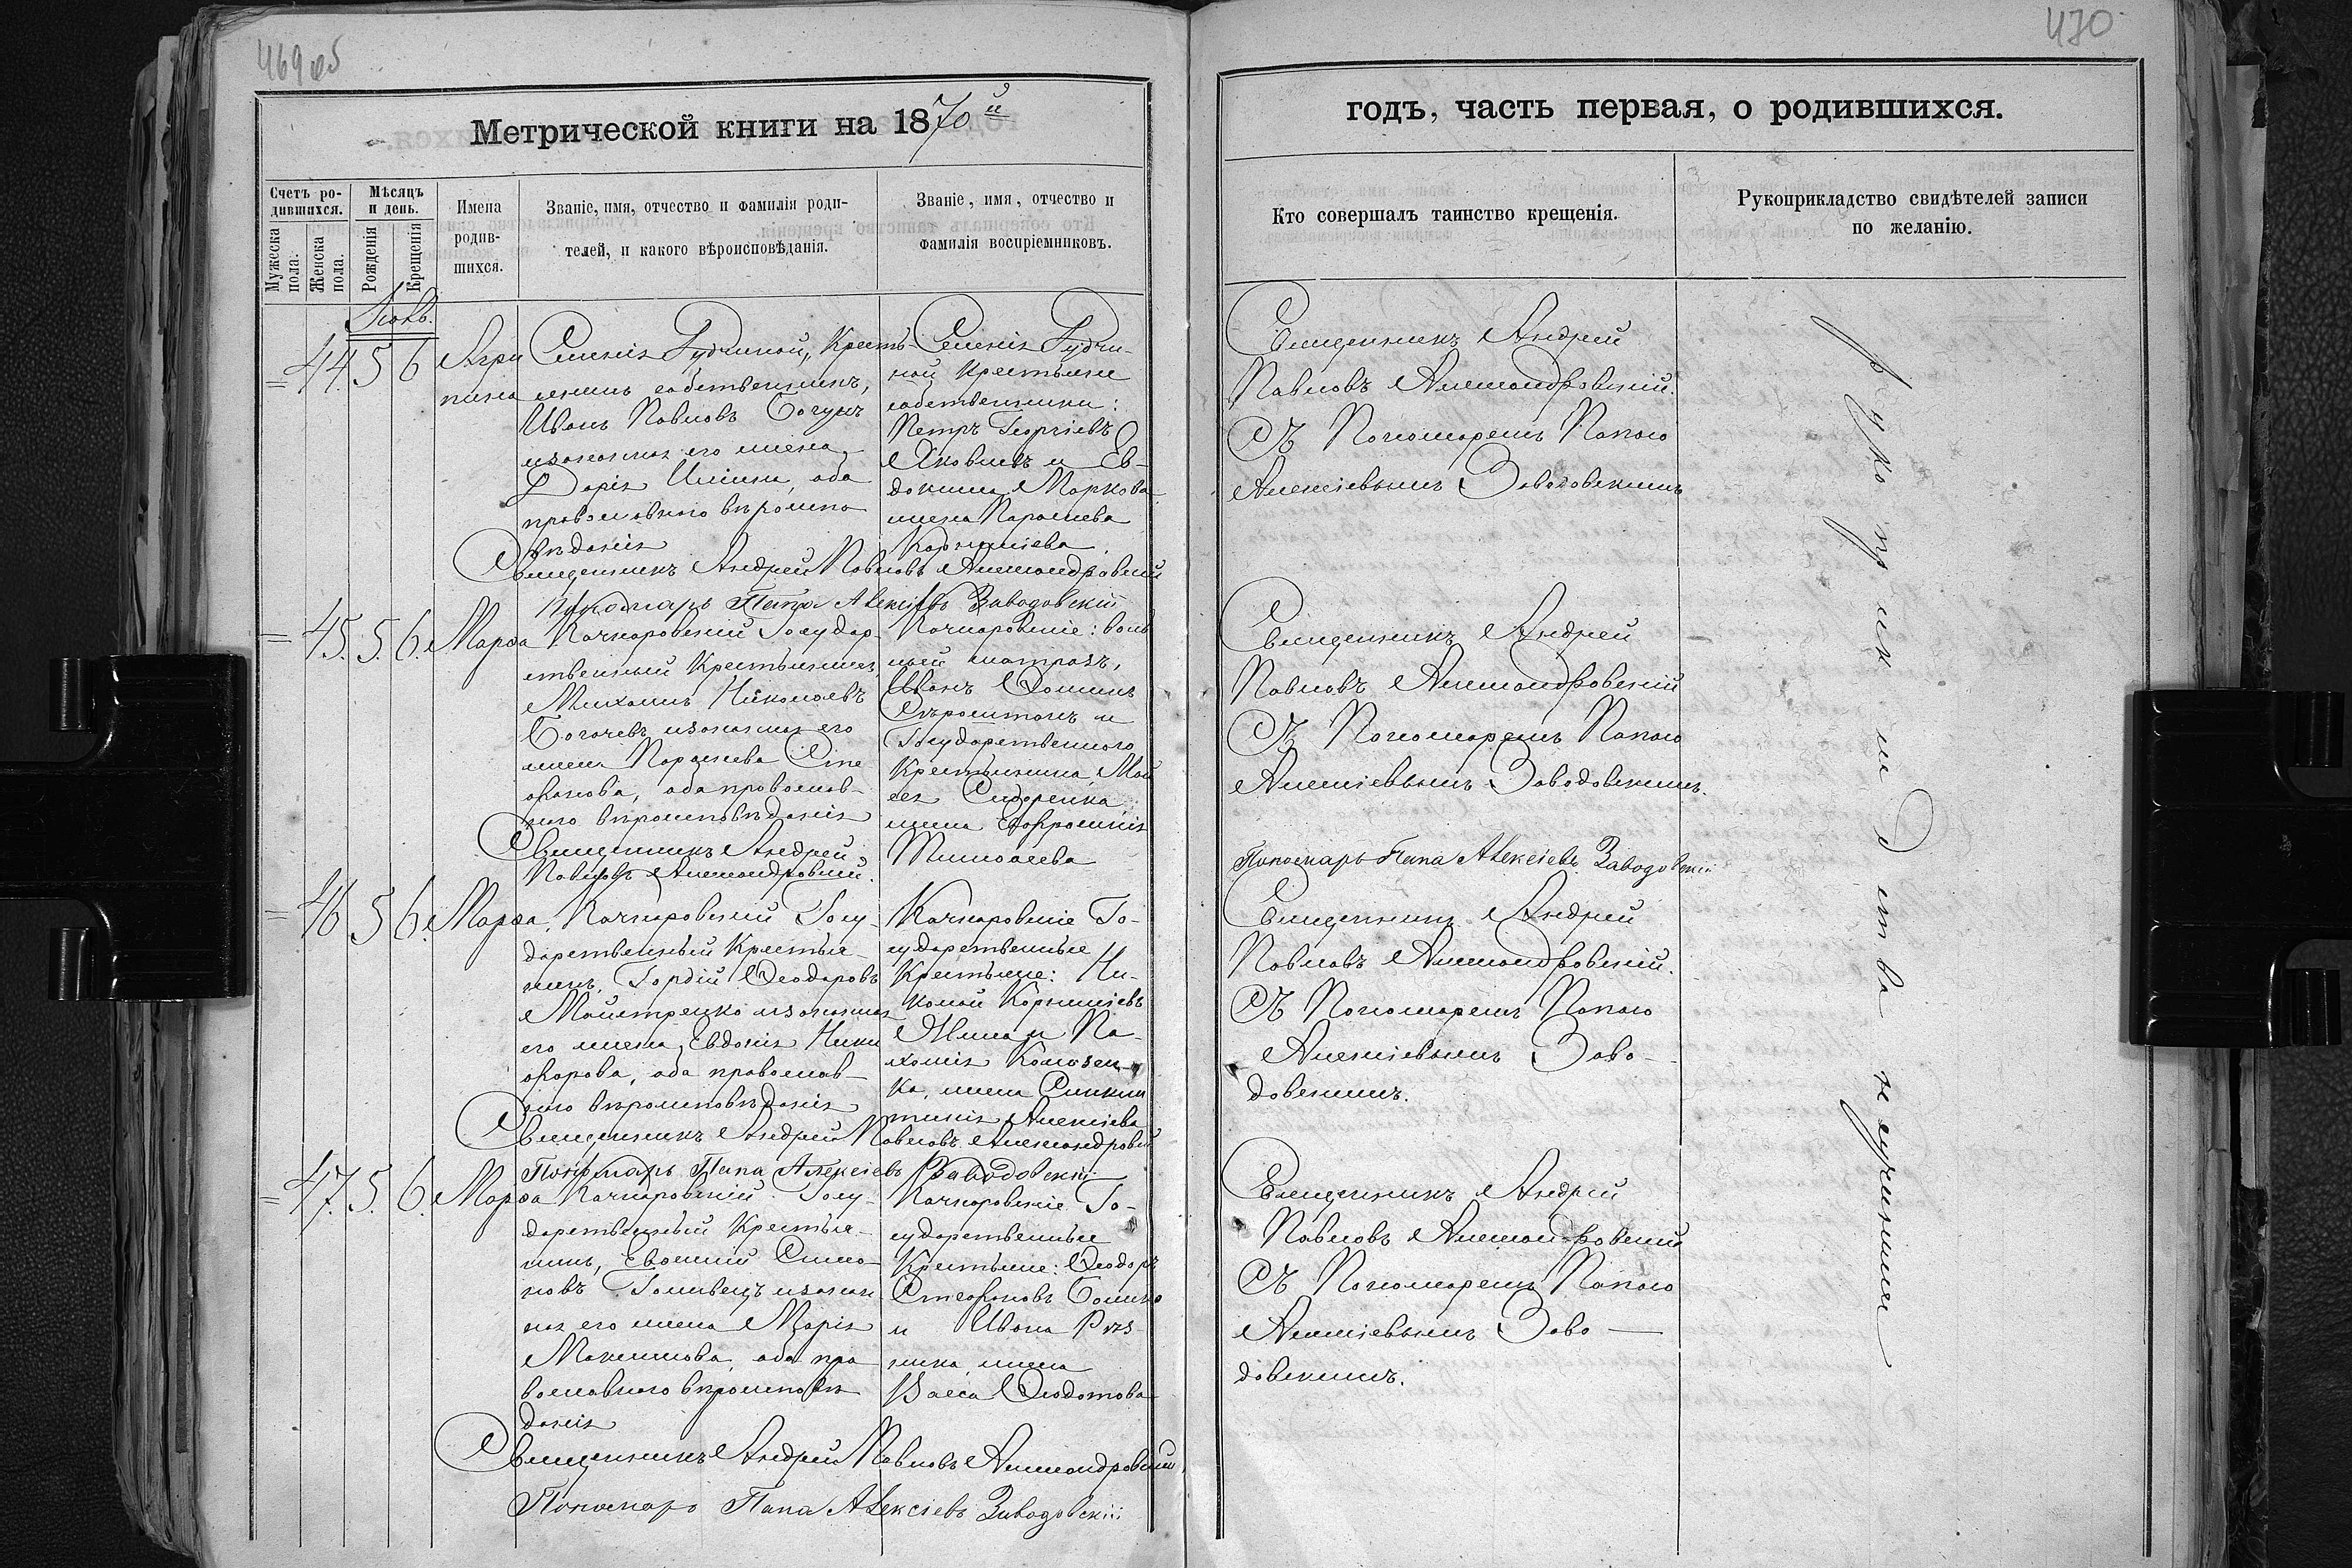 469 об
Метрической книги на 1870й
Счетъ ро-
дившихся.
Мужеска пола.
Женска пола.
Мѣсяцъ
и день.
Рожденія
Крещенія
Имена
родив-
шихся.
Званіе, имя, отчество и фамилія роди-
телей, и какого вѣроисповѣданія.
Званіе, имя, отчество и
фамилія воспріемниковъ.
= 44. 5 6 Агри
пина
Селенія Гудчиной, Кресть-
янинъ собственникъ,
Иванъ Павловъ Богунъ
и законная его жена
Дарія Иліина, оба
православного вѣроиспо
вѣданія
Селенія Гудчи-
ной Крестьяне
собственники:
Петръ Георгіевъ
Яковлевъ и Ев-
докима Маркова
жена Параскева
Корниліева.
Священникъ Андрей Павловъ Александровскій
Пономарь Папа Алексіевъ Заводовскій
= 45. 5. 6. Марѳа
Качкаровскій Государ-
ственный Крестьянинъ,
Михаилъ Николаевъ
Богачевъ и законная его
жена Параскева Сте
фанова, оба православ-
ного вѣроисповѣданія
Качкаровскіе: воль
ный матрозъ,
Иванъ Ѳоминъ
и
Государственного
Крестьянина Мои
сея Сидоренка
жена Евфросинія
Тимоѳеева
Священникъ Андрей
Павловъ Александровскій.
= 46 5 6. Марѳа.
Качкаровскій Госу-
дарственный Крестья-
нинъ, Гордій Ѳеодоровъ
Майстренко и законная
его жена, Евдокія Ники
форова, оба православ-
ного вѣроисповѣданія
Качкаровскіе Го-
сударственные
Крестьяне: Ни-
колай Корниліевъ
и Па-
хомія
ка, жена Синкли
тикія Алексіева
Священникъ Андрей Павловъ Александровскій
Пономарь Папа Алексіевъ Заводовскій
= 47. 5. 6. Марѳа
Качкаровскій Госу-
дарственный Крестья-
нинъ, Симо-
новъ Голивецъ и закон
ная его жена Марія
Максимова, оба пра
вославного вѣроисповѣ
данія
Качкаровскіе Го-
сударственные
Крестьяне: Ѳеодоръ
Стефановъ
и Ивана Рѣз
ника жена
Васса Ѳеодотова
Священникъ Андрей Павловъ Александровскій
Пономарь Папа Алексіевъ Заводовскій
470
годъ, часть первая, о родившихся.
Кто совершалъ таинство крещенія.
Рукоприкладство свидѣтелей записи
по желанію.
Священникъ Андрей
Павловъ Александровскій.
Съ Пономаремъ Папою
Алексіевымъ Заводовскимъ
Священникъ Андрей
Павловъ Александровскій
Съ Пономаремъ Папою
Алексіевымъ Заводовскимъ.
Пономарь Папа Алексіевъ Заводовскій
Священникъ Андрей
Павловъ Александровскій.
Съ Пономаремъ Папою
Алексіевымъ Заво-
довскимъ.
Священникъ Андрей
Павловъ Александровскій
Съ Пономаремъ Папою
Алексіевымъ Заво-
довскимъ.
рукоприкладства не учинили